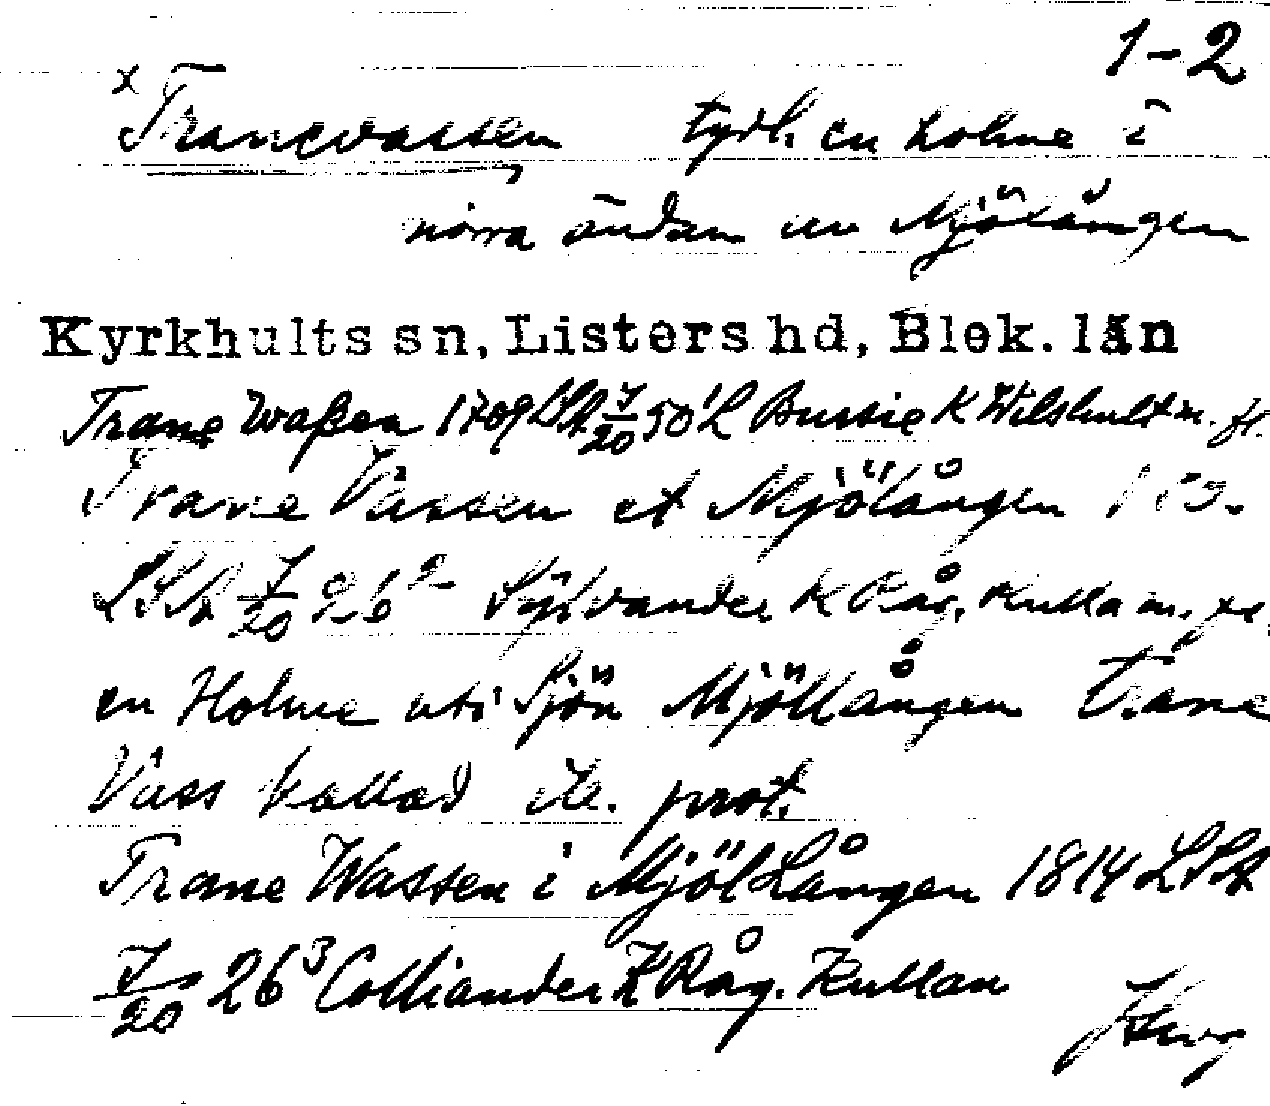 1-2
x Tranevassen tydl. en holme i
norra ändan av Mjölången
Kyrkhults sn, Listers hd, Blek. län
Trane Waßen 1709 LSA 7/20 50¹ L Bussie K Wilshult m. fl.
Trane Vassen et Mjölången
LSA 7/20 26² Sylvander K Råg. Kulla m. fl.
en Holme uti Sjön Mjöllången Trane
Vass kallad ib. prot.
Trane Wassen i MjölLången 1814 LSA
7/20 26³ Colliander K Råg. Kullan